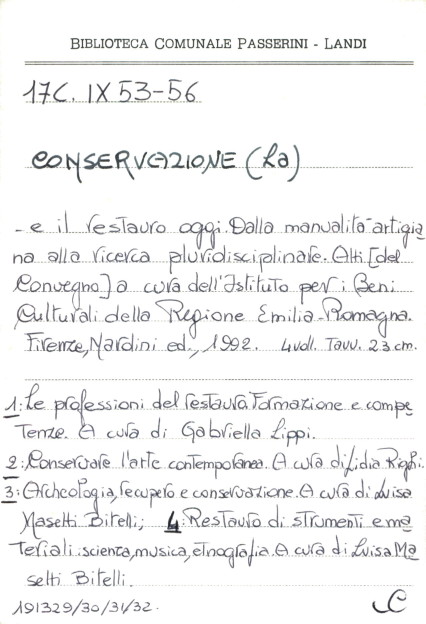 BIBLIOTECA COMUNALE PASSERINI - LANDI
17C. IX 53-56
CONSERVAZIONE (La)
- e il restauro oggi. Dalla manualità artigia
na alla ricerca pluridisciplinare. Atti [del
Convegno] a cura dell'Istituto per i Beni
Culturali della Regione Emilia-Romagna.
Firenze, Nardini ed., 1992. 4 voll. Tavv. 23 cm.
1: Le professioni del restauro. Formazione e compe
tenze. A cura di Gabriella Lippi.
2: Conservare l'arte contemporanea. A cura di Lidia Righi.
3: Archeologia, recupero e conservazione. A cura di Luisa
Masetti Bitelli; 4: Restauro di strumenti e ma
teriali: scienza, musica, etnografia. A cura di Luisa Ma
setti Bitelli.
191329/30/31/32.
C